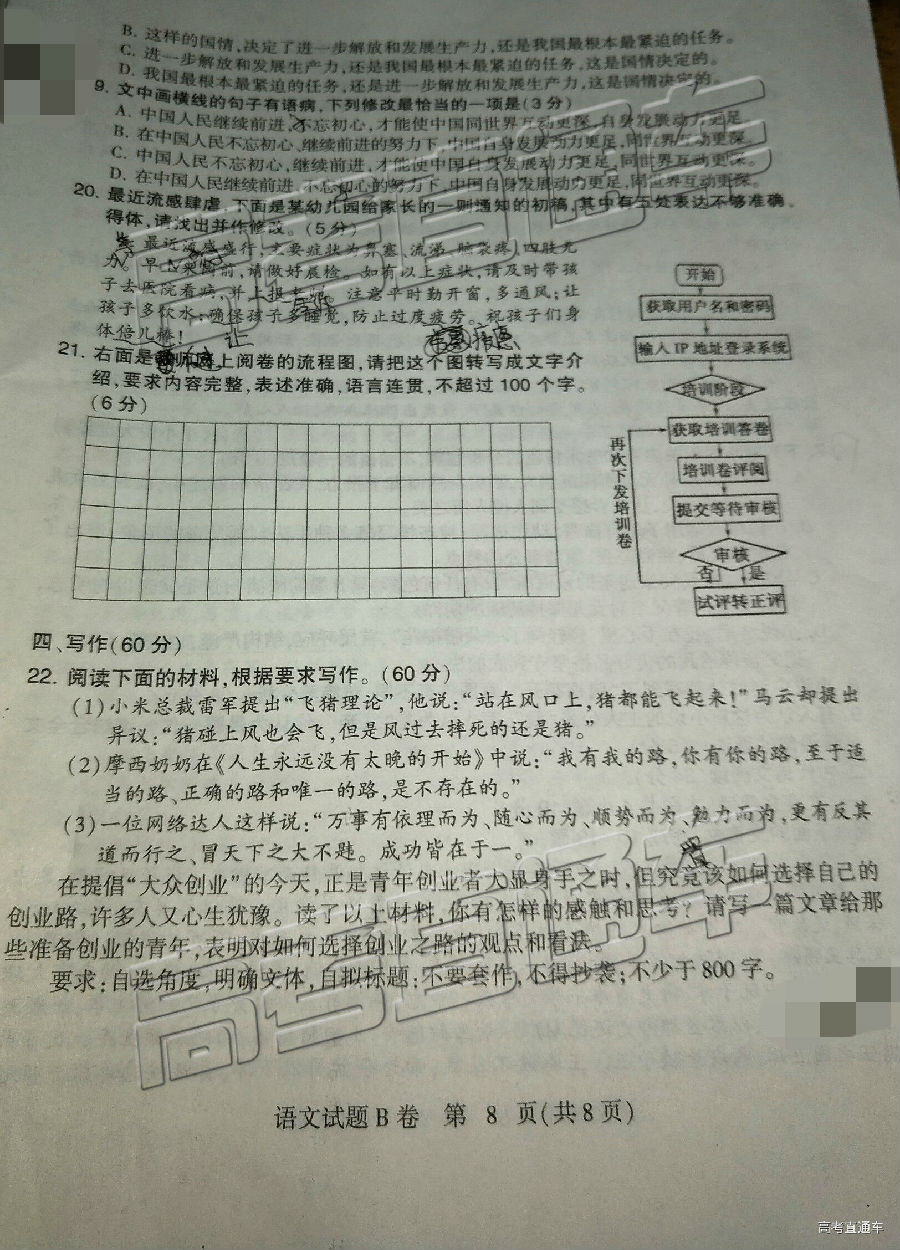 B. 这样的国情,决定了进一步解放和发展生产力,还是我国最根本最紧迫的任务。
C. 进一步解放和发展生产力,还是我国最根本最紧迫的任务,这是国情决定的。
D. 我国最根本最紧迫的任务,还是进一步解放和发展生产力,这是国情决定的。
9. 文中画横线的句子有语病,下列修改最恰当的一项是(3分)
A. 中国人民继续前进,不忘初心,才能使中国同世界互动更深,自身发展动力更足。
B. 在中国人民不忘初心、继续前进的努力下,中国自身发展动力更足,同世界互动更深。
C. 中国人民不忘初心,继续前进,才能使中国自身发展动力更足,同世界互动更深。
D. 在中国人民继续前进、不忘初心的努力下,中国自身发展动力更足,同世界互动更深。
20. 最近流感肆虐,下面是某幼儿园给家长的一则通知的初稿,其中有五处表达不够准确、
得体,请找出并作修改。(5分)
最近流感盛行,主要症状为鼻塞、流涕、脑袋疼、四肢无
力。早上来园前,请做好晨检。如有以上症状,请及时带孩
子去医院看病,并上报老师。注意平时勤开窗,多通风;让
孩子多饮水;确保孩子多睡觉,防止过度疲劳。祝孩子们身
体倍儿棒!
让
21. 右面是上阅卷的流程图,请把这个图转写成文字介
绍,要求内容完整,表述准确,语言连贯,不超过100个字。
(6分)
开始
获取用户名和密码
输入IP地址登录系统
培训阶段
获取培训答卷
培训卷评阅
提交等待审核
审核
否
是
试评转正评
再次下发培训卷
四、写作(60分)
22. 阅读下面的材料,根据要求写作。(60分)
(1)小米总裁雷军提出“飞猪理论”,他说:“站在风口上,猪都能飞起来!”马云却提出
异议:“猪碰上风也会飞,但是风过去摔死的还是猪。”
(2)摩西奶奶在《人生永远没有太晚的开始》中说:“我有我的路,你有你的路,至于适
当的路、正确的路和唯一的路,是不存在的。”
(3)一位网络达人这样说:“万事有依理而为、随心而为、顺势而为、勉力而为,更有反其
道而行之、冒天下之大不韪。成功皆在于一。”
在提倡“大众创业”的今天,正是青年创业者大显身手之时,但究竟该如何选择自己的
创业路,许多人又心生犹豫。读了以上材料,你有怎样的感触和思考?请写一篇文章给那
些准备创业的青年,表明对如何选择创业之路的观点和看法。
要求:自选角度,明确文体,自拟标题;不要套作,不得抄袭;不少于800字。
高考直通车
高考直通车
语文试题B卷 第 8 页(共8页)
高考直通车